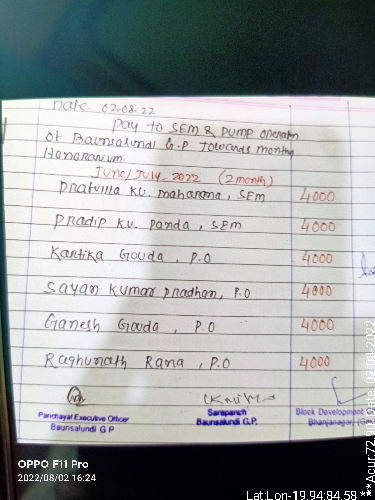 Date. 02.08.22
Pay to SEM & Pump operator
of Baunsalundi G.P Towards monthly
Honorarium.
June/July-2022 (2 month)
Pratvilla ku. maharana, SEM 4000
Pradip ku. panda, SEM 4000
Kartika Gouda, P.O 4000
Sayan Kumar pradhan, P.O 4000
Ganesh Gouda, P.O 4000
Raghunath Rana, P.O 4000
Panchayat Executive Officer
Baunsalundi G.P
Sarapanch
Baunsalundi G.P.
Block Development
Bhanjanagar, (G
OPPO F11 Pro
2022/08/02 16:24
Lat:Lon-19.94:84.58***Acur:72.90:Date:02.08.2022